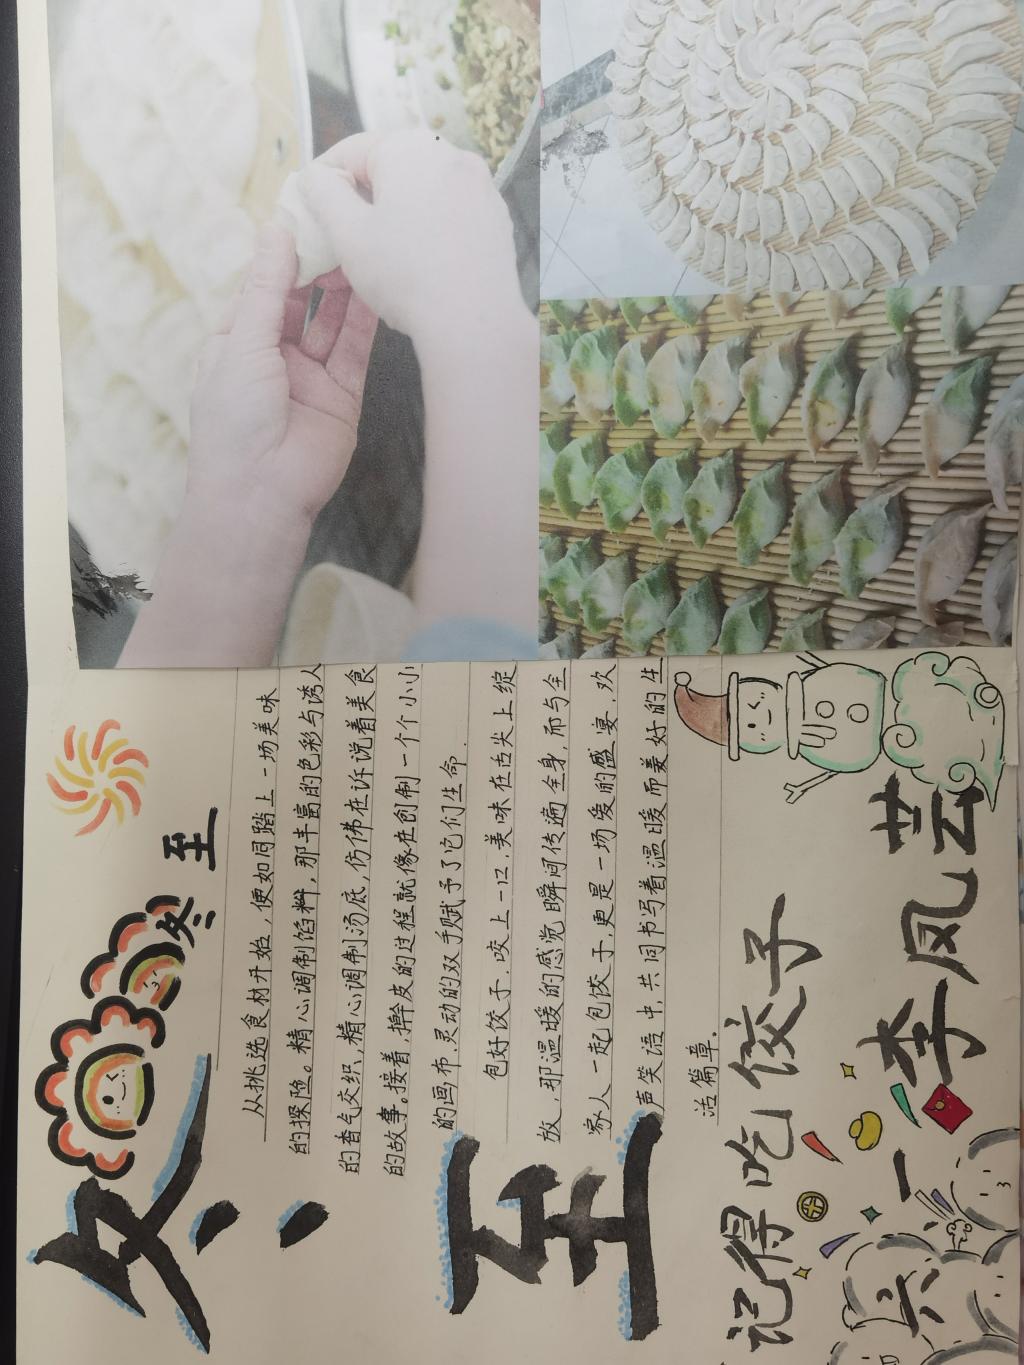 冬至
冬至
从挑选食材开始，便如同踏上一场美味
的探险。精心调制馅料，那丰富的色彩与诱人
的香气交织，精心调制汤底，仿佛在诉说着美食
的故事。接着，擀皮的过程就像在创制一个个小小
的画布，灵动的双手赋予了它们生命.
包好饺子.咬上一口，美味在舌尖上绽
放，那温暖的感觉瞬间传遍全身，而与全
家人一起包饺子，更是一场爱的盛宴，欢
声笑语中，共同书写着温暖而美好的生
活篇章.
记得吃饺子
六一 李凤芸